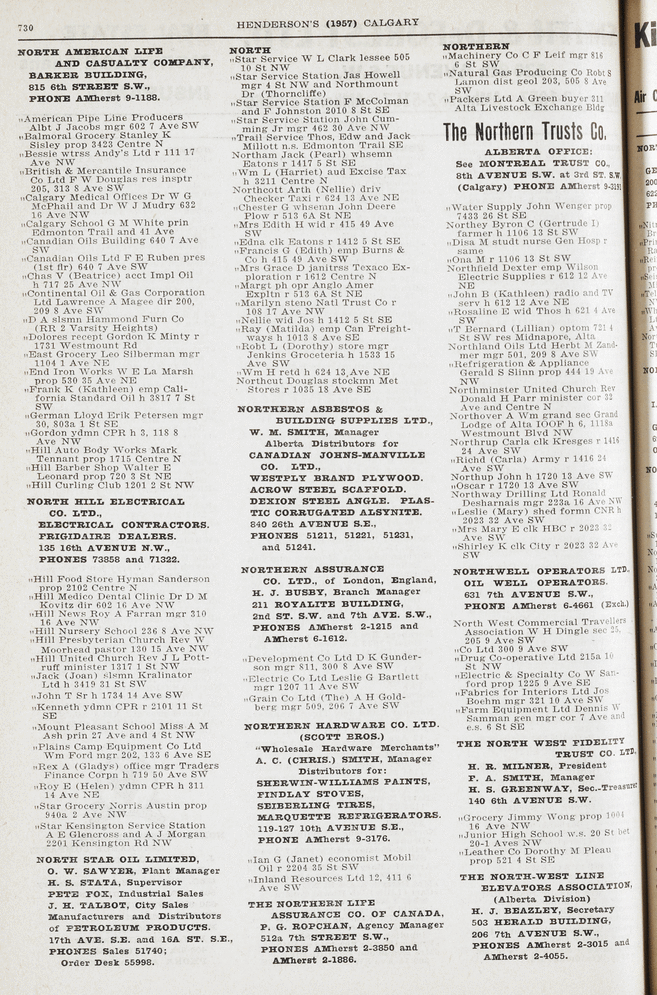 730
HENDERSON'S (1957) CALGARY
NORTH AMERICAN LIFE
AND CASUALTY COMPANY,
BARKER BUILDING,
815 6th STREET S.W.,
PHONE AMherst 9-1188.
„American Pipe Line Producers
Albt J Jacobs mgr 602 7 Ave SW
„Balmoral Grocery Stanley K
Sisley prop 3423 Centre N
„Bessie wtrss Andy's Ltd r 111 17
Ave NW
„British & Mercantile Insurance
Co Ltd F W Douglas res insptr
205, 313 8 Ave SW
„Calgary Medical Offices Dr W G
McPhail and Dr W J Mudry 632
16 Ave NW
„Calgary School G M White prin
Edmonton Trail and 41 Ave
„Canadian Oils Building 640 7 Ave
SW
„Canadian Oils Ltd F E Ruben pres
(1st flr) 640 7 Ave SW
„Chas V (Beatrice) acct Impl Oil
h 717 25 Ave NW
„Continental Oil & Gas Corporation
Ltd Lawrence A Magee dir 200,
209 8 Ave SW
„D A slsmn Hammond Furn Co
(RR 2 Varsity Heights)
„Dolores recept Gordon K Minty r
1731 Westmount Rd
„East Grocery Leo Silberman mgr
1104 1 Ave NE
„End Iron Works W E La Marsh
prop 530 35 Ave NE
„Frank K (Kathleen) emp Cali-
fornia Standard Oil h 3817 7 St
SW
„German Lloyd Erik Petersen mgr
30, 803a 1 St SE
„Gordon ydmn CPR h 3, 118 8
Ave NW
„Hill Auto Body Works Mark
Tennant prop 1715 Centre N
„Hill Barber Shop Walter E
Leonard prop 720 3 St NE
„Hill Curling Club 1201 2 St NW
NORTH HILL ELECTRICAL
CO. LTD.,
ELECTRICAL CONTRACTORS.
FRIGIDAIRE DEALERS.
135 16th AVENUE N.W.,
PHONES 73858 and 71322.
„Hill Food Store Hyman Sanderson
prop 2102 Centre N
„Hill Medico Dental Clinic Dr D M
Kovitz dir 602 16 Ave NW
„Hill News Roy A Farran mgr 310
16 Ave NW
„Hill Nursery School 236 8 Ave NW
„Hill Presbyterian Church Rev W
Moorhead pastor 130 15 Ave NW
„Hill United Church Rev J L Pott-
ruff minister 1317 1 St NW
„Jack (Joan) slsmn Kralinator
Ltd h 3419 31 St SW
„John T Sr h 1734 14 Ave SW
„Kenneth ydmn CPR r 2101 11 St
SE
„Mount Pleasant School Miss A M
Ash prin 27 Ave and 4 St NW
„Plains Camp Equipment Co Ltd
Wm Ford mgr 202, 133 6 Ave SE
„Rex A (Gladys) office mgr Traders
Finance Corpn h 719 50 Ave SW
„Roy E (Helen) ydmn CPR h 311
14 Ave NE
„Star Grocery Norris Austin prop
940a 2 Ave NW
„Star Kensington Service Station
A E Glencross and A J Morgan
2201 Kensington Rd NW
NORTH STAR OIL LIMITED,
O. W. SAWYER, Plant Manager
H. S. STATA, Supervisor
PETE FOX, Industrial Sales
J. H. TALBOT, City Sales
Manufacturers and Distributors
of PETROLEUM PRODUCTS.
17th AVE. S.E. and 16A ST. S.E.,
PHONES Sales 51740;
Order Desk 55998.
NORTH
„Star Service W L Clark lessee 505
10 St NW
„Star Service Station Jas Howell
mgr 4 St NW and Northmount
Dr (Thorncliffe)
„Star Service Station F McColman
and F Johnston 2010 8 St SE
„Star Service Station John Cum-
ming Jr mgr 462 30 Ave NW
„Trail Service Thos, Edw and Jack
Millott n.s. Edmonton Trail SE
Northam Jack (Pearl) whsemn
Eatons r 1417 5 St SE
„Wm L (Harriet) aud Excise Tax
h 3211 Centre N
Northcott Arth (Nellie) driv
Checker Taxi r 624 13 Ave NE
„Chester G whsemn John Deere
Plow r 513 6A St NE
„Mrs Edith H wid r 415 49 Ave
SW
„Edna clk Eatons r 1412 5 St SE
„Francis G (Edith) emp Burns &
Co h 415 49 Ave SW
„Mrs Grace D janitrss Texaco Ex-
ploration r 1612 Centre N
„Margt ph opr Anglo Amer
Expltn r 513 6A St NE
„Marilyn steno Natl Trust Co r
108 17 Ave NW
„Nellie wid Jos h 1412 5 St SE
„Ray (Matilda) emp Can Freight-
ways h 1013 8 Ave SE
„Robt L (Dorothy) store mgr
Jenkins Groceteria h 1533 15
Ave SW
„Wm H retd h 624 13 Ave NE
Northcut Douglas stockmn Met
Stores r 1035 18 Ave SE
NORTHERN ASBESTOS &
BUILDING SUPPLIES LTD.,
W. M. SMITH, Manager
Alberta Distributors for
CANADIAN JOHNS-MANVILLE
CO. LTD.,
WESTPLY BRAND PLYWOOD.
ACROW STEEL SCAFFOLD.
DEXION STEEL ANGLE. PLAS-
TIC CORRUGATED ALSYNITE.
840 26th AVENUE S.E.,
PHONES 51211, 51221, 51231,
and 51241.
NORTHERN ASSURANCE
CO. LTD., of London, England,
H. J. BUSBY, Branch Manager
211 ROYALITE BUILDING,
2nd ST. S.W. and 7th AVE. S.W.,
PHONES AMherst 2-1215 and
AMherst 6-1612.
„Development Co Ltd D K Gunder-
son mgr 811, 300 8 Ave SW
„Electric Co Ltd Leslie G Bartlett
mgr 1207 11 Ave SW
„Grain Co Ltd (The) A H Gold-
berg mgr 509, 206 7 Ave SW
NORTHERN HARDWARE CO. LTD.
(SCOTT BROS.)
"Wholesale Hardware Merchants"
A. C. (CHRIS.) SMITH, Manager
Distributors for:
SHERWIN-WILLIAMS PAINTS,
FINDLAY STOVES,
SEIBERLING TIRES,
MARQUETTE REFRIGERATORS.
119-127 10th AVENUE S.E.,
PHONE AMherst 9-3176.
„Ian G (Janet) economist Mobil
Oil r 2204 35 St SW
„Inland Resources Ltd 12, 411 6
Ave SW
THE NORTHERN LIFE
ASSURANCE CO. OF CANADA,
P. G. ROPCHAN, Agency Manager
512a 7th STREET S.W.,
PHONES AMherst 2-3850 and
AMherst 2-1886.
NORTHERN
„Machinery Co C F Leif mgr 816
6 St SW
„Natural Gas Producing Co Robt S
Lamon dist geol 203, 505 8 Ave
SW
„Packers Ltd A Green buyer 311
Alta Livestock Exchange Bldg
The Northern Trusts Co.
ALBERTA OFFICE:
See MONTREAL TRUST CO.,
8th AVENUE S.W. at 3rd ST. S.W.
(Calgary) PHONE AMherst 9-3191
„Water Supply John Wenger prop
7433 26 St SE
Northey Byron C (Gertrude I)
farmer h 1106 13 St SW
„Disa M studt nurse Gen Hosp r
same
„Ona M r 1106 13 St SW
Northfield Dexter emp Wilson
Electric Supplies r 612 12 Ave
NE
„John B (Kathleen) radio and TV
serv h 612 12 Ave NE
„Rosaline E wid Thos h 621 4 Ave
SW
„T Bernard (Lillian) optom 721 4
St SW res Midnapore, Alta
Northland Oils Ltd Herbt M Zand-
mer mgr 501, 209 8 Ave SW
„Refrigeration & Appliance
Gerald S Slinn prop 444 19 Ave
NW
Northminster United Church Rev
Donald H Parr minister cor 32
Ave and Centre N
Northover A Wm grand sec Grand
Lodge of Alta IOOF h 6, 1118a
Westmount Blvd NW
Northrup Carla clk Kresges r 1416
24 Ave SW
„Richd (Carla) Army r 1416 24
Ave SW
Northup John h 1720 13 Ave SW
„Oscar r 1720 13 Ave SW
Northway Drilling Ltd Ronald
Desharnais mgr 223a 16 Ave NW
„Leslie (Mary) shed formn CNR h
2023 32 Ave SW
„Mrs Mary E clk HBC r 2023 32
Ave SW
„Shirley K clk City r 2023 32 Ave
SW
NORTHWELL OPERATORS LTD.
OIL WELL OPERATORS.
631 7th AVENUE S.W.,
PHONE AMherst 6-4661 (Exch.)
North West Commercial Travellers
Association W H Dingle sec 25,
205 9 Ave SW
„Co Ltd 300 9 Ave SW
„Drug Co-operative Ltd 215a 10
St NW
„Electric & Specialty Co W San-
ford prop 1225 9 Ave SE
„Fabrics for Interiors Ltd Jos
Boehm mgr 321 10 Ave SW
„Farm Equipment Ltd Dennis W
Samman gen mgr cor 7 Ave and
e.s. 6 St SE
THE NORTH WEST FIDELITY
TRUST CO. LTD.
H. R. MILNER, President
F. A. SMITH, Manager
H. S. GREENWAY, Sec.-Treasurer
140 6th AVENUE S.W.
„Grocery Jimmy Wong prop 1004
16 Ave NW
„Junior High School w.s. 20 St bet
20-1 Aves NW
„Leather Co Dorothy M Pleau
prop 521 4 St SE
THE NORTH-WEST LINE
ELEVATORS ASSOCIATION,
(Alberta Division)
H. J. BEAZLEY, Secretary
503 HERALD BUILDING,
206 7th AVENUE S.W.,
PHONES AMherst 2-3015 and
AMherst 2-4055.
Ki
Air C